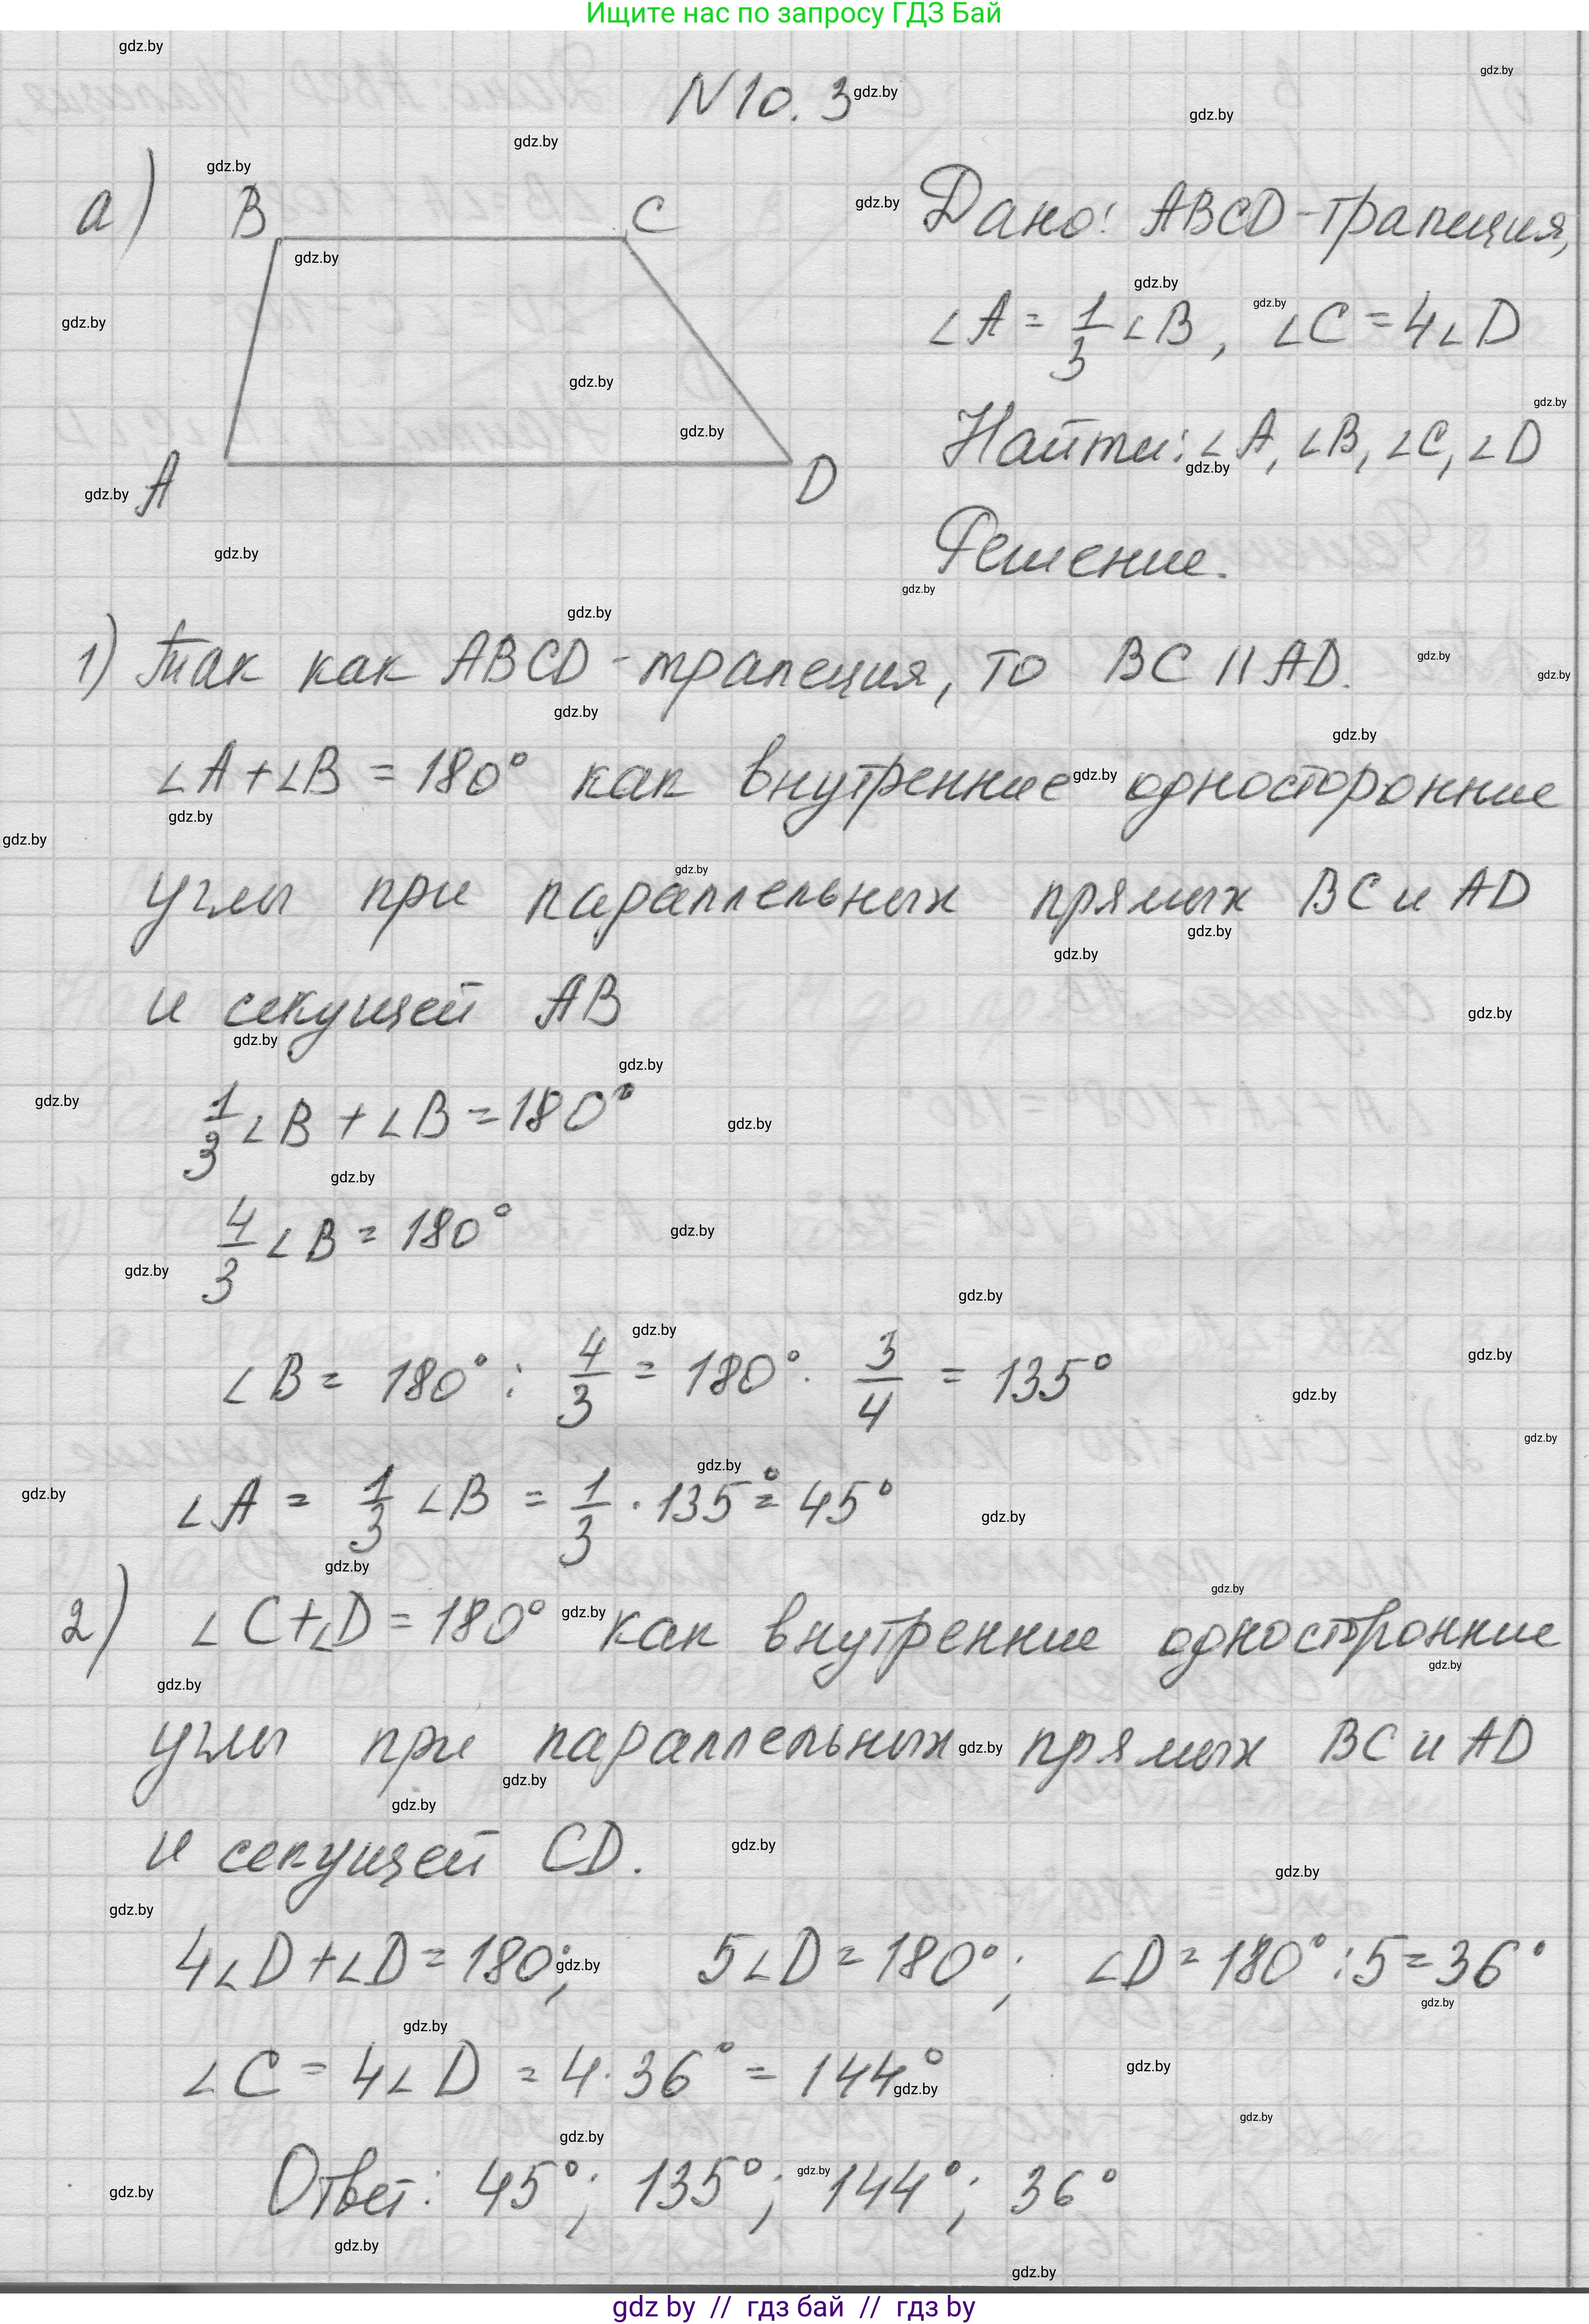 Ищите нас по запросу ГДЗ Бай
N10.3
а)
B
C
A
D
Дано: ABCD-трапеция,
∠A = 1/3 ∠B, ∠C = 4∠D
Найти: ∠A, ∠B, ∠C, ∠D
Решение.
1) Так как ABCD - трапеция, то BC || AD.
∠A + ∠B = 180° как внутренние односторонние
углы при параллельных прямых BC и AD
и секущей AB
1/3 ∠B + ∠B = 180°
4/3 ∠B = 180°
∠B = 180° : 4/3 = 180° · 3/4 = 135°
∠A = 1/3 ∠B = 1/3 · 135° = 45°
2) ∠C + ∠D = 180° как внутренние односторонние
углы при параллельных прямых BC и AD
и секущей CD.
4∠D + ∠D = 180°; 5∠D = 180°; ∠D = 180° : 5 = 36°
∠C = 4∠D = 4 · 36° = 144°
Ответ: 45°; 135°; 144°; 36°
gdz by // гдз бай // гдз by